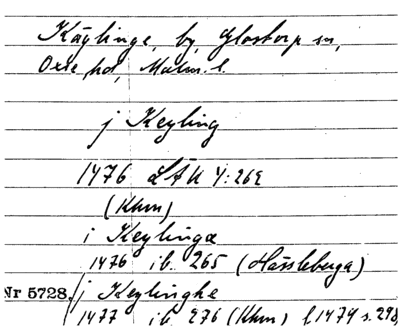 Käglinge, by, Glostorp sn,
Oxie hd, Malm. l.
j Keyling
1476 LÅU 4:262
(Khm)
i Keylinge
1476 ib. 265 (Hässleberga)
Nr 5728. j Keylinghe
1477 ib. 276 (Khm) f. 1474 s. 298